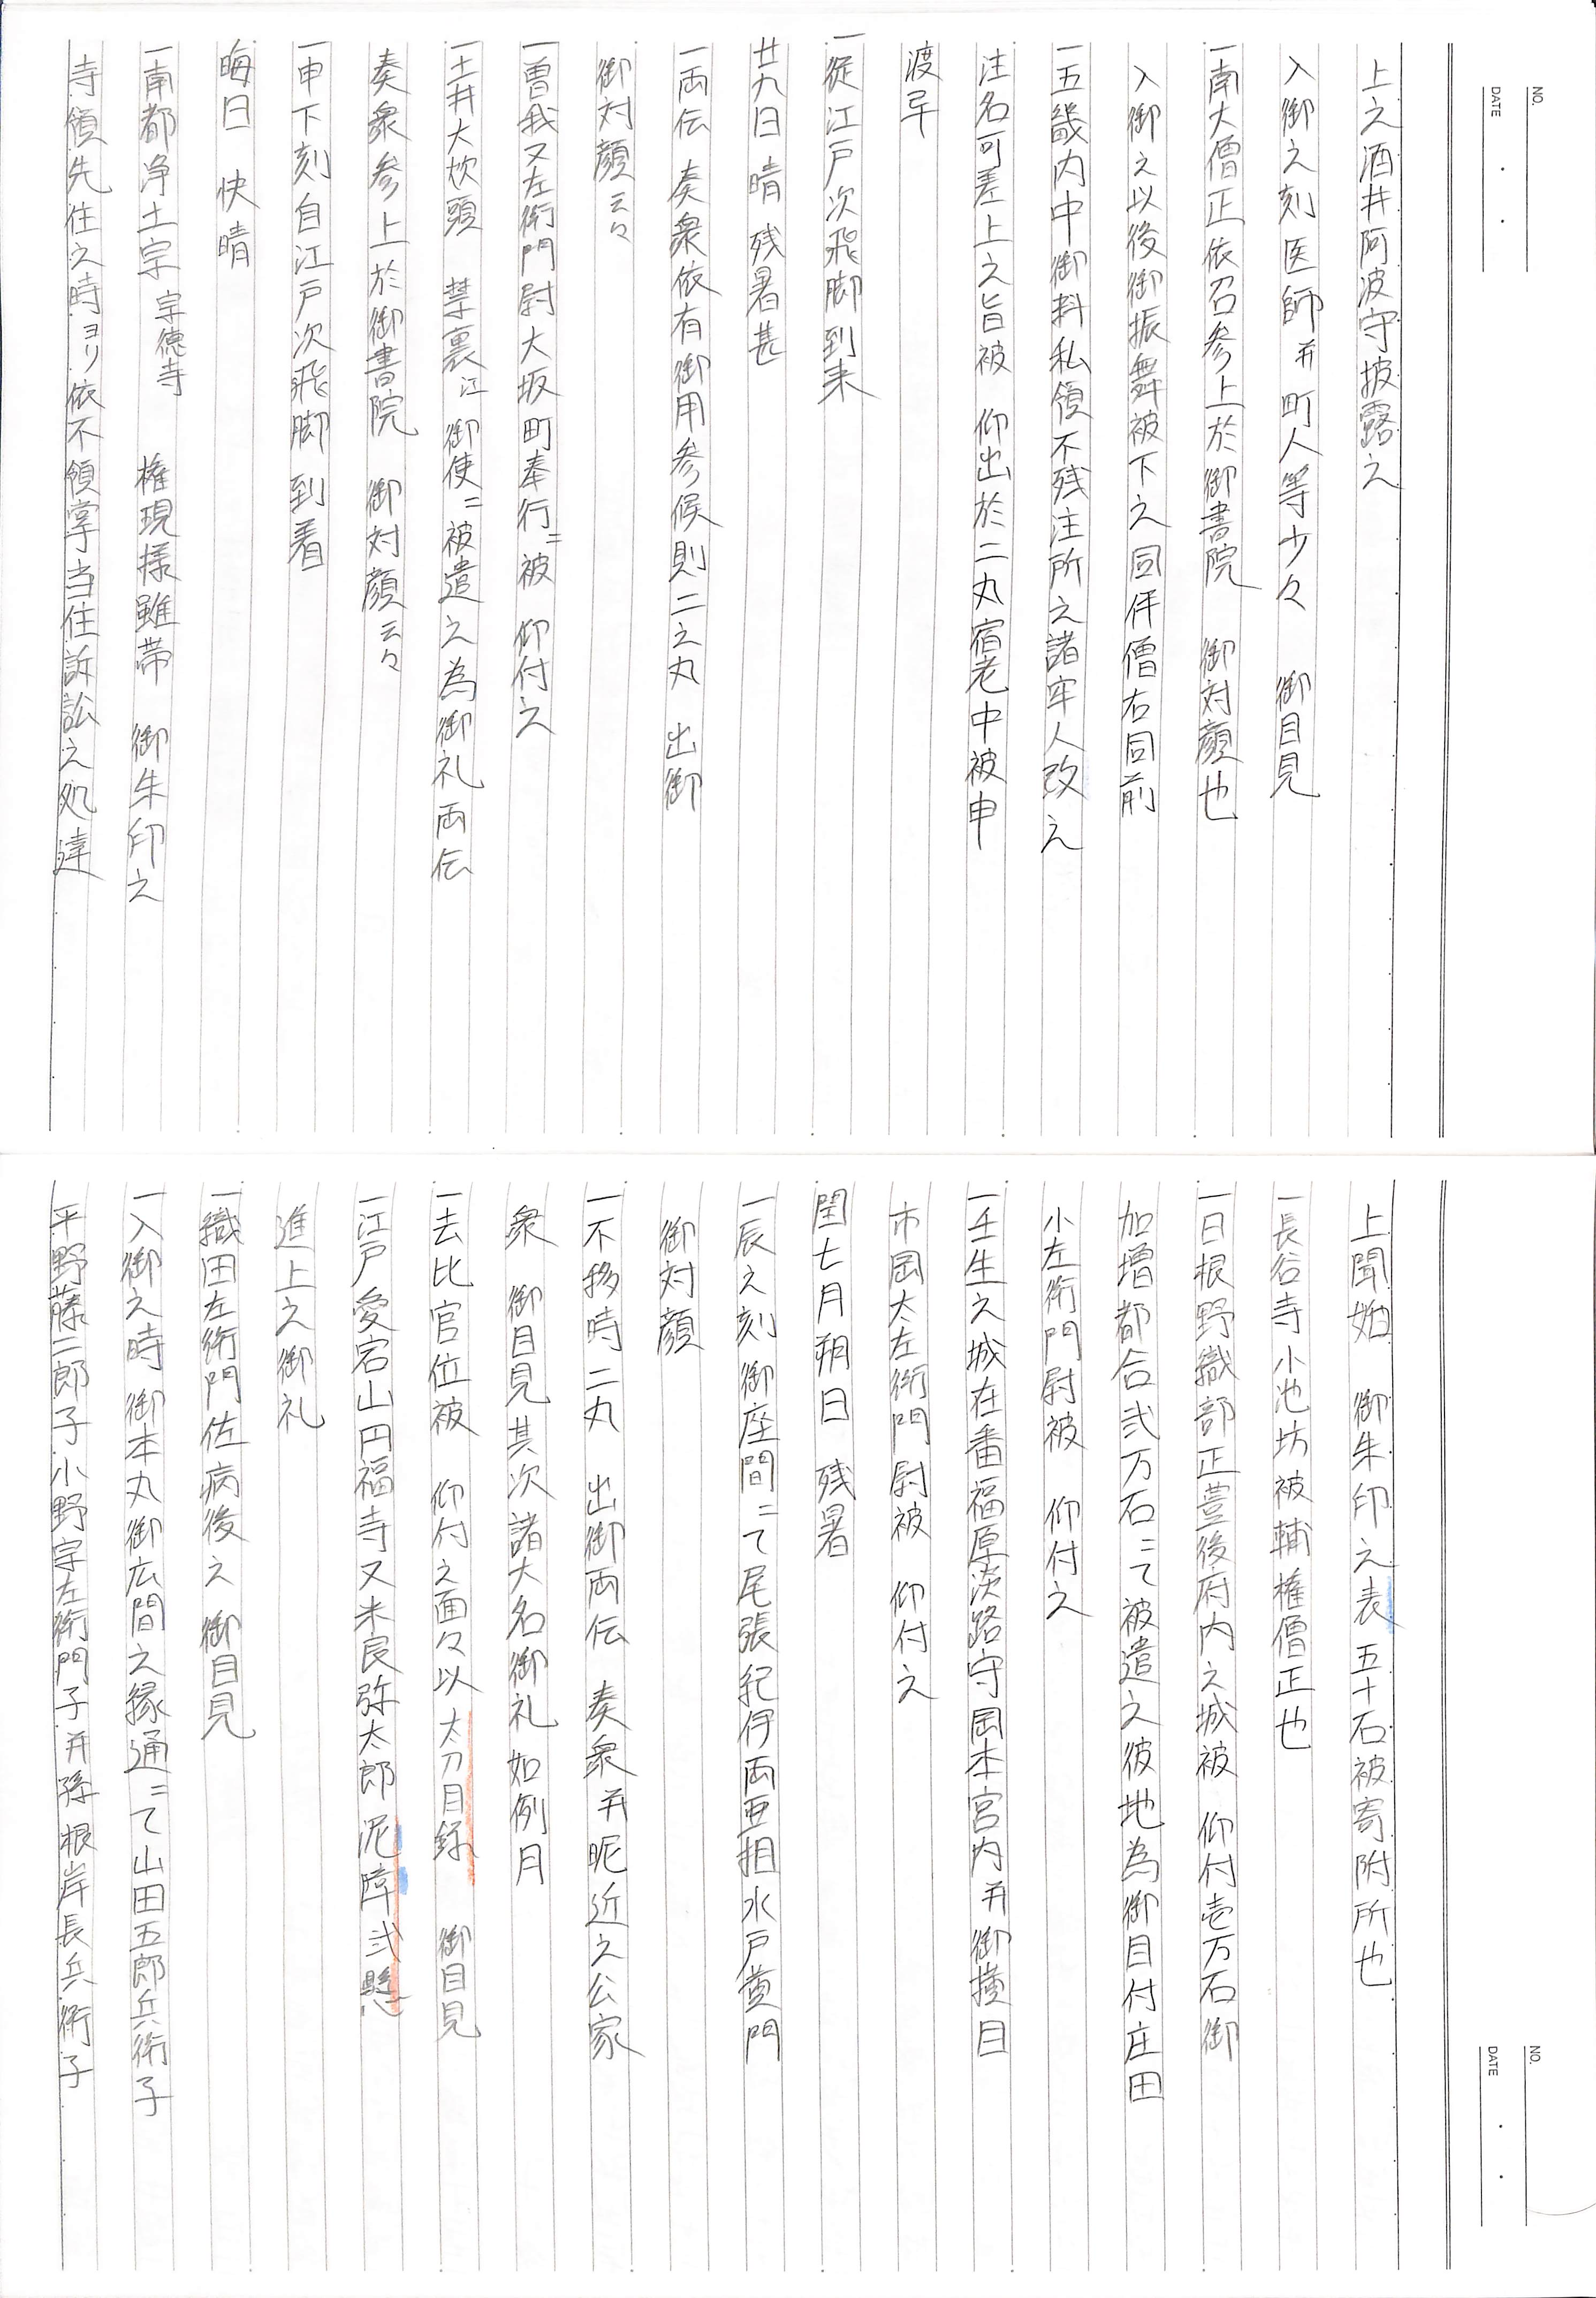 NO.
DATE
上之酒井阿波守披露之
入御之刻医師并町人等少々　御目見
一南大僧正依召参上於御書院　御対顔也
入御之以後御振舞被下之同伴僧右同前
一五畿内中御料私領不残注所之諸牢人改之
注名可差上之旨被　仰出於二丸宿老中被申
渡畢
一従江戸次飛脚到来
廿九日晴　残暑甚
一両伝　奏衆依有御用参候則二之丸　出御
御対顔云々
一曽我又左衛門尉大坂町奉行ニ被　仰付之
一土井大炊頭　禁裏江御使ニ被遣之為御礼両伝
奏衆参上於御書院　御対顔云々
一申下刻自江戸次飛脚到着
晦日　快晴
一南都浄土宗宗徳寺　権現様雖帯　御朱印之
寺領先住之時ヨリ依不領掌当住訴訟之処達
NO.
DATE
上聞始　御朱印之表五十石被寄附所也
一長谷寺小池坊被輔権僧正也
一日根野織部正豊後府内之城被　仰付壱万石御
加増都合弐万石ニて被遣之彼地為御目付庄田
小左衛門尉被　仰付之
一壬生之城在番福原淡路守岡本宮内并御横目
市岡太左衛門尉被　仰付之
閏七月朔日　残暑
一辰之刻御座間ニて尾張紀伊両亜相水戸黄門
御対顔
一不移時二丸　出御両伝　奏衆并昵近之公家
衆　御目見其次諸大名御礼如例月
一去比官位被　仰付之面々以太刀目録　御目見
一江戸愛宕山円福寺又米良弥太郎泥障弐懸
進上之御礼
一織田左衛門佐病後之　御目見
一入御之時御本丸御広間之縁通ニて山田五郎兵衛子
平野藤二郎子小野宗左衛門子并孫根岸長兵衛子